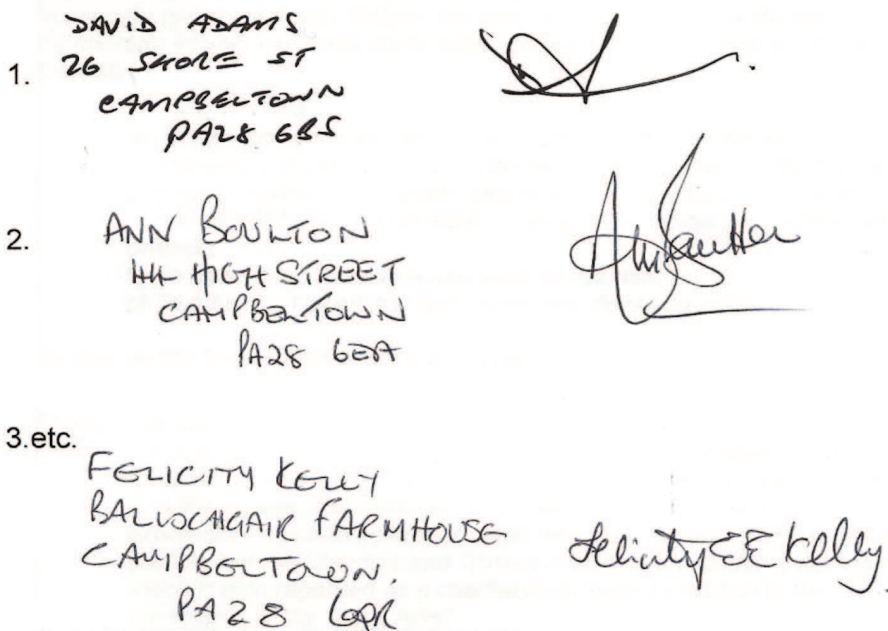 1.
DAVID ADAMS
26 SHORE ST
CAMPBELTOWN
PA28 6BS
2.
ANN BOULTON
44 HIGH STREET
CAMPBELTOWN
PA28 6EA
3.etc.
FELICITY KELLY
BALLOCHGAIR FARMHOUSE
CAMPBELTOWN.
PA28 6QR
Felicity EE Kelly.